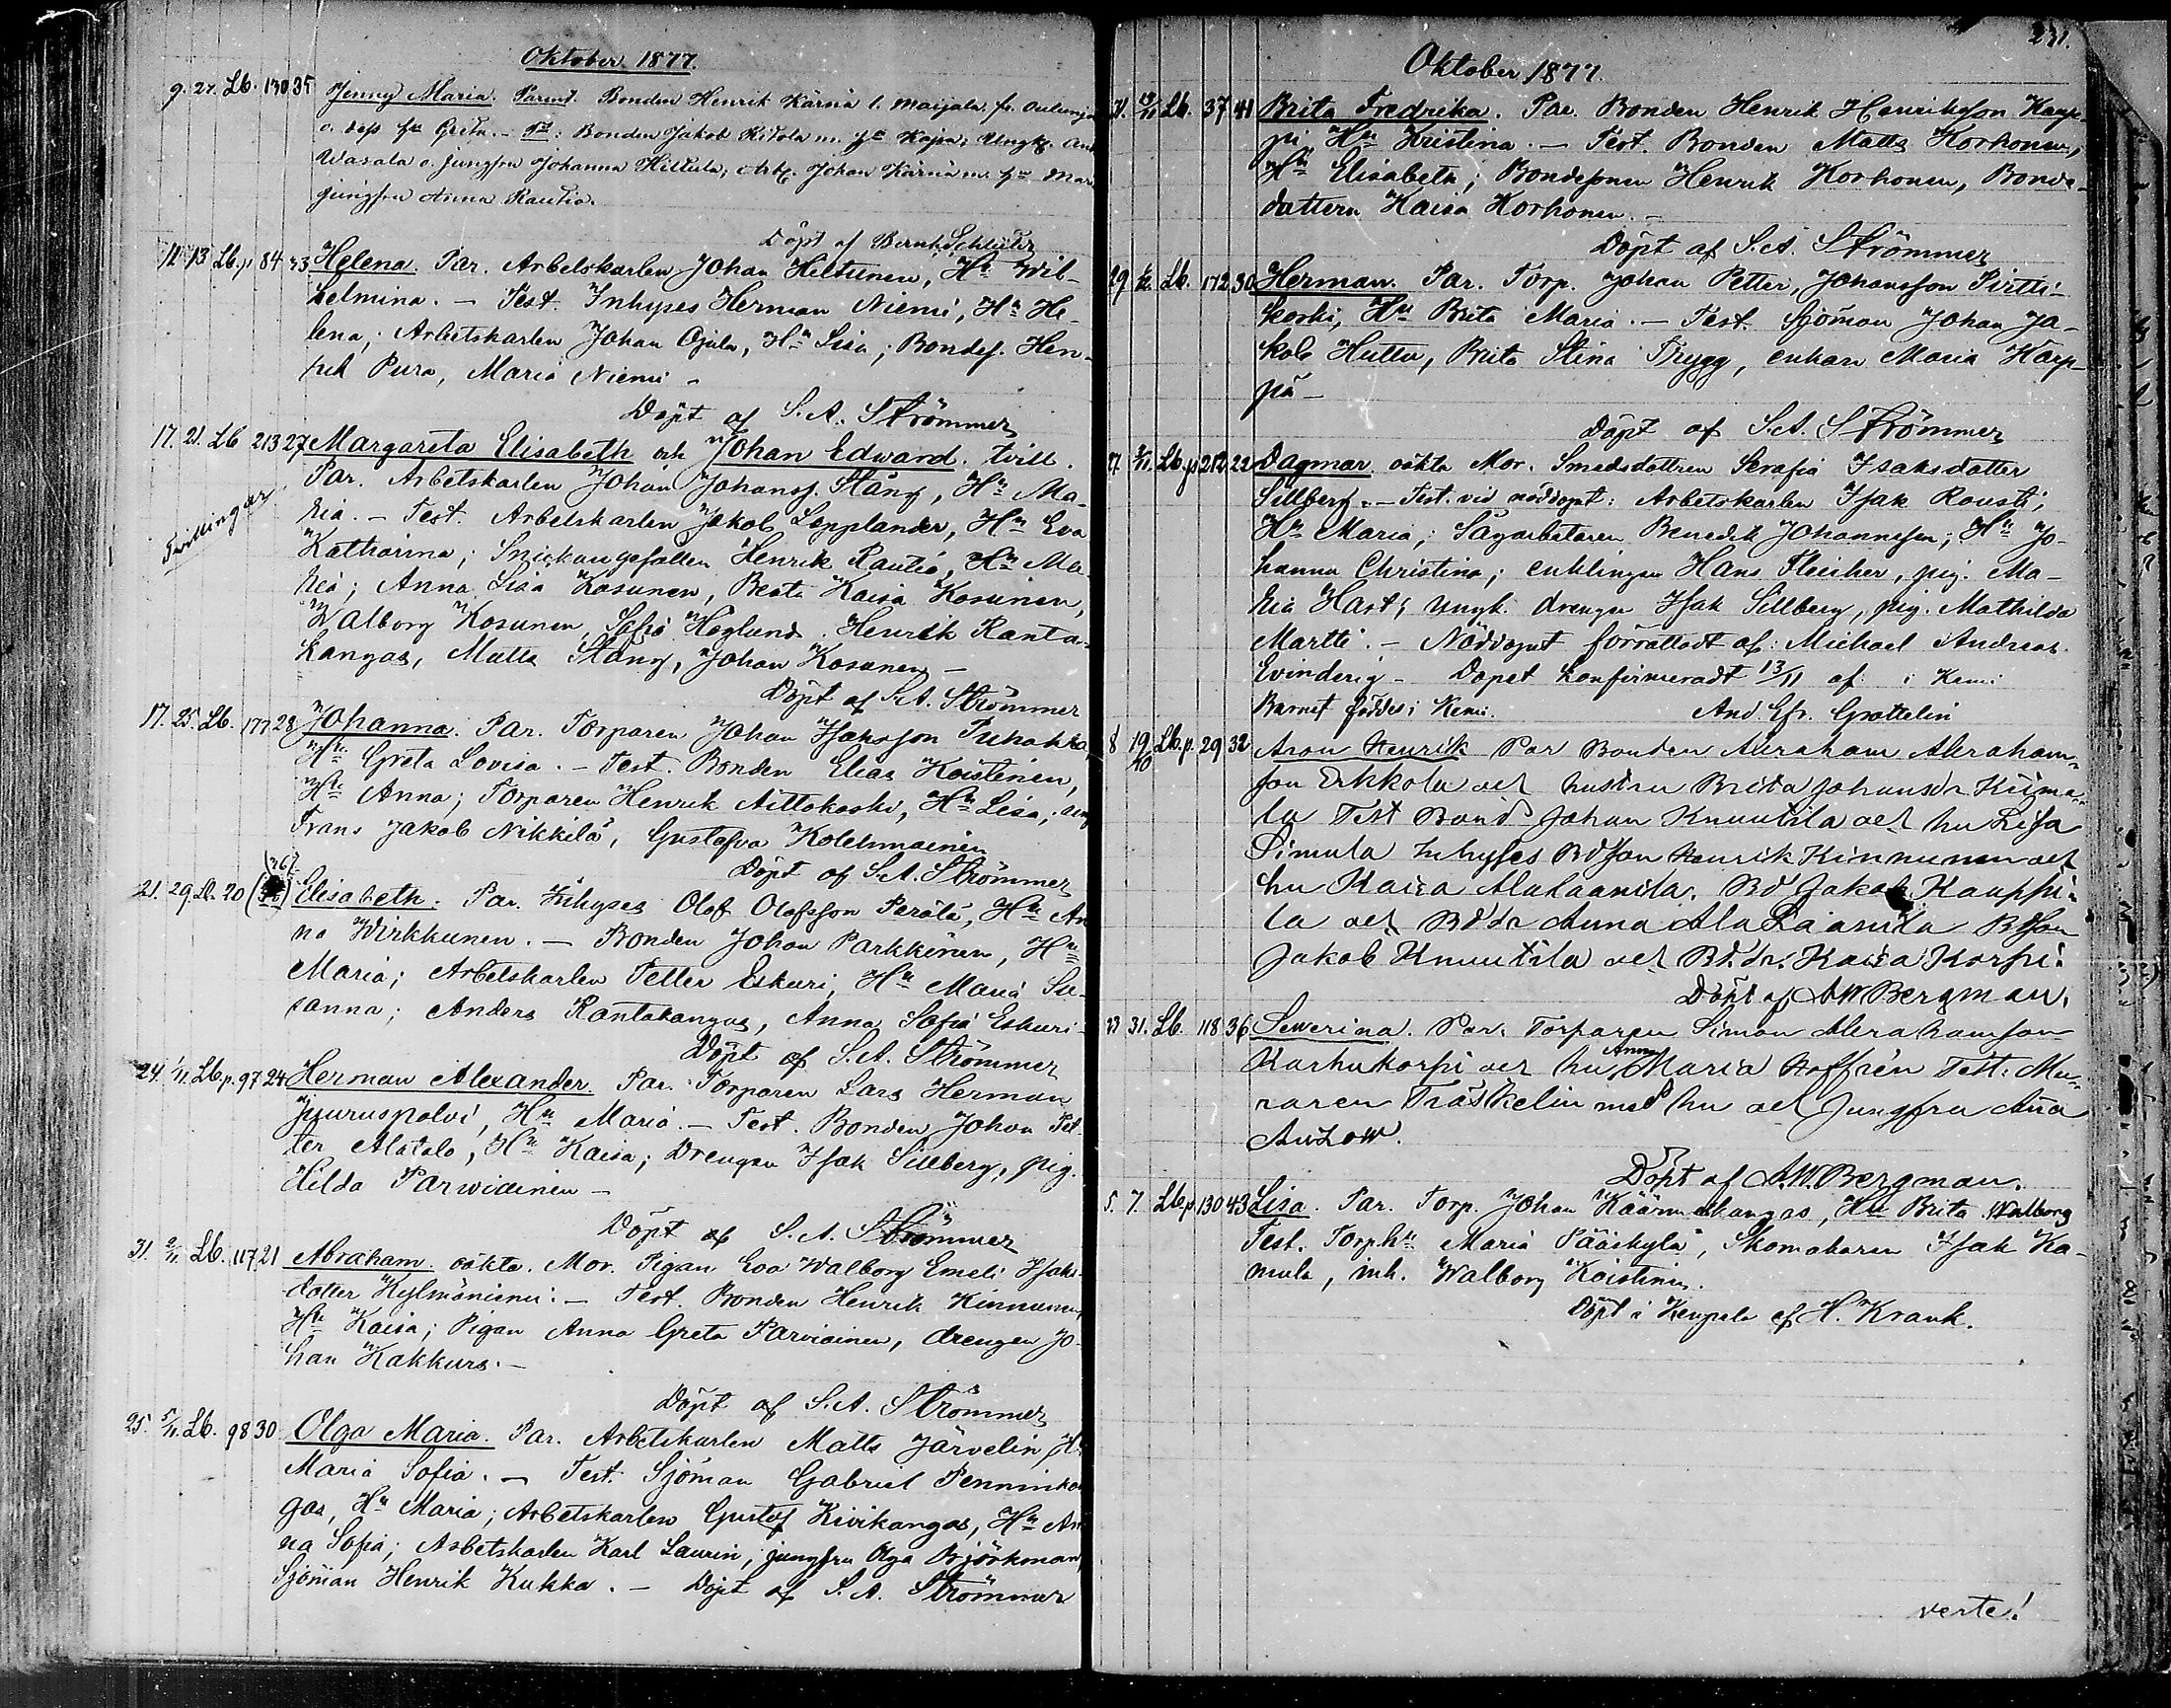 Oktober 1877.
9. 27. Lb. 130 35 Jenny Maria. Parent. Bonden Henrik Kärnä l. Maijala, fr.
o. dess hu Greta. — Bonden Jakob Kitola m. hu Kajsa;
Wasala o. jungfru Johanna Hiltula, Arb. Johan Kärnä m. hu Mar
jungfru Anna Rautio.
Döpt af Bernh. Schlüter
12 13 Lb. p 84 33 Helena. Par. Arbetskarlen Johan Hiltunen, Hu Wil-
helmina. — Test. Inhyses Herman Niemi, Hu He-
lena; Arbetskarlen Johan Ojala, Hu Lisa; Bondes. Hen-
rik Pura, Maria Niemi —
Döpt af S. A. Strömmer
17. 21. Lb 213 27 Margareta Elisabeth och Johan Edward. tvill.
Tvillingar
Par. Arbetskarlen Johan Johanss. Stång, Hu Ma-
ria. — Test. Arbetskarlen Jakob Lepplander, Hu Eva
Katharina; Snickaregesällen Henrik Rautio, Hu Ma
ria; Anna Lisa Kosunen, Beata Kaisa Kosunen,
Walborg Kosunen, Sofia Höglund. Henrik Ranta-
kangas, Matts Stång, Johan Kosunen —
Döpt af S. A. Strömmer
17. 25. Lb. 177 28 Johanna. Par. Torparen Johan Isaksson Puhakka,
Hu Greta Lovisa. — Test. Bonden Elias Koistinen,
Hu Anna; Torparen Henrik Aittokoski, Hu Lisa; ung
Frans Jakob Nikkilä, Gustafva Kolehmainen
Döpt af S. A. Strömmer
21. 29. Lb. 20 Elisabeth. Par. Inhyses Olof Olofsson Perälä, Hu An
na Wirkkunen. — Bonden Johan Parkkinen, Hu
Maria; Arbetskarlen Petter Eskuri, Hu Maria Su-
sanna; Anders Rantakangas, Anna Sofia Eskuri —
Döpt af S. A. Strömmer
24. 1/11. Lb. p. 97 24 Herman Alexander. Par. Torparen Lars Herman
Juuruspolvi, Hu Maria. — Test. Bonden Johan Pet-
ter Alatalo, Hu Kaisa; Drengen Isak Sillberg, pig.
Hilda Parwiainen —
Döpt af S. A. Strömmer
31. 2/11 Lb. 117 21 Abraham. oäkta. Mor. Pigan Eva Walborg Emeli Isaks-
dotter Kylmäniemi. — Test. Bonden Henrik Kinnunen,
Hu Kaisa; Pigan Anna Greta Parviainen, drengen Jo-
han Kakkura. —
Döpt af S. A. Strömmer
25. 5/11. Lb. 98 30 Olga Maria. Par. Arbetskarlen Matts Järvelin, Hu
Maria Sofia. — Test. Sjöman Gabriel Penninkan
gas, Hu Maria; Arbetskarlen Gustaf Kivikangas, Hu An
na Sofia; Arbetskarlen Karl Laurin; jungfru Olga Björkman,
Sjöman Henrik Kukka. — Döpt af S. A. Strömmer
231.
Oktober 1877.
21. 13/11 Lb. 37 41 Brita Fredrika. Par. Bonden Henrik Henriksson Kaup-
pi Hu Kristina. — Test. Bonden Matts Korhonen,
Hu Elisabeth; Bondesonen Henrik Korhonen, Bonde-
dottern Kaisa Korhonen. —
Döpt af S. A. Strömmer
29 Lb. 172 30 Herman. Par. Torp. Johan Petter, Johansson Pirtti-
koski, Hu Brita Maria. — Test. Sjöman Johan Ja-
kob Huttu, Brita Stina Trygg, enkan Maria Karp-
pä —
Döpt af S. A. Strömmer
27. 3/11 Lb. p 212 22 Dagmar. oäkta Mor. Smedsdottren Serafia Isaksdotter
Sillberg. — Test. vid nöddopet: Arbetskarlen Isak Rousti,
Hu Maria; Sågarbetaren Benedik Johannesen; Hu Jo-
hanna Christina; enklingen Hans Fleicher, pig. Ma-
ria Hast; ungk. drengen Isak Sillberg, pig. Mathilda
Martti. — Nöddopet förrättadt af: Michael Andreas
Evinderig — Dopet konfirmeradt 13/11 af i Kemi
Barnet föddes i Kemi. And. Efr. Grottelin
8 19/10 Lb. p. 29 32 Aron Henrik Par Bonden Abraham Abraham-
son Erkkola och hustru Brita Johansdr Kiima-
la Test Bond Johan Knuutila och hu Lisa
Simula Inhyses Bdson Henrik Kinnunen och
hu Kaisa Alalaanila. Bd Jakob Kauppi-
la och Bd dr Anna Alalaanila Bdson
Jakob Knuutila och Bd. dr. Kaisa Korpi.
Döpt af A W Bergman.
23 31. Lb. 118 36 Sewerina. Par. Torparen Simon Abrahamson
Karhukorpi och hu Anna Maria Hoffrén Test: Mu-
raren Träskelin med hu och Jungfru Anna
Autow.
Döpt af A. W. Bergman.
5. 7. Lb. p. 130 43 Lisa. Par. Torp. Johan Käärmekangas, Hu Brita Walborg
Test. Torp.hu Maria Pääskylä, Skomakaren Isak Ka-
nula, inh. Walborg Koistinen.
Döpt i Kempele af H. Krank.
verte!